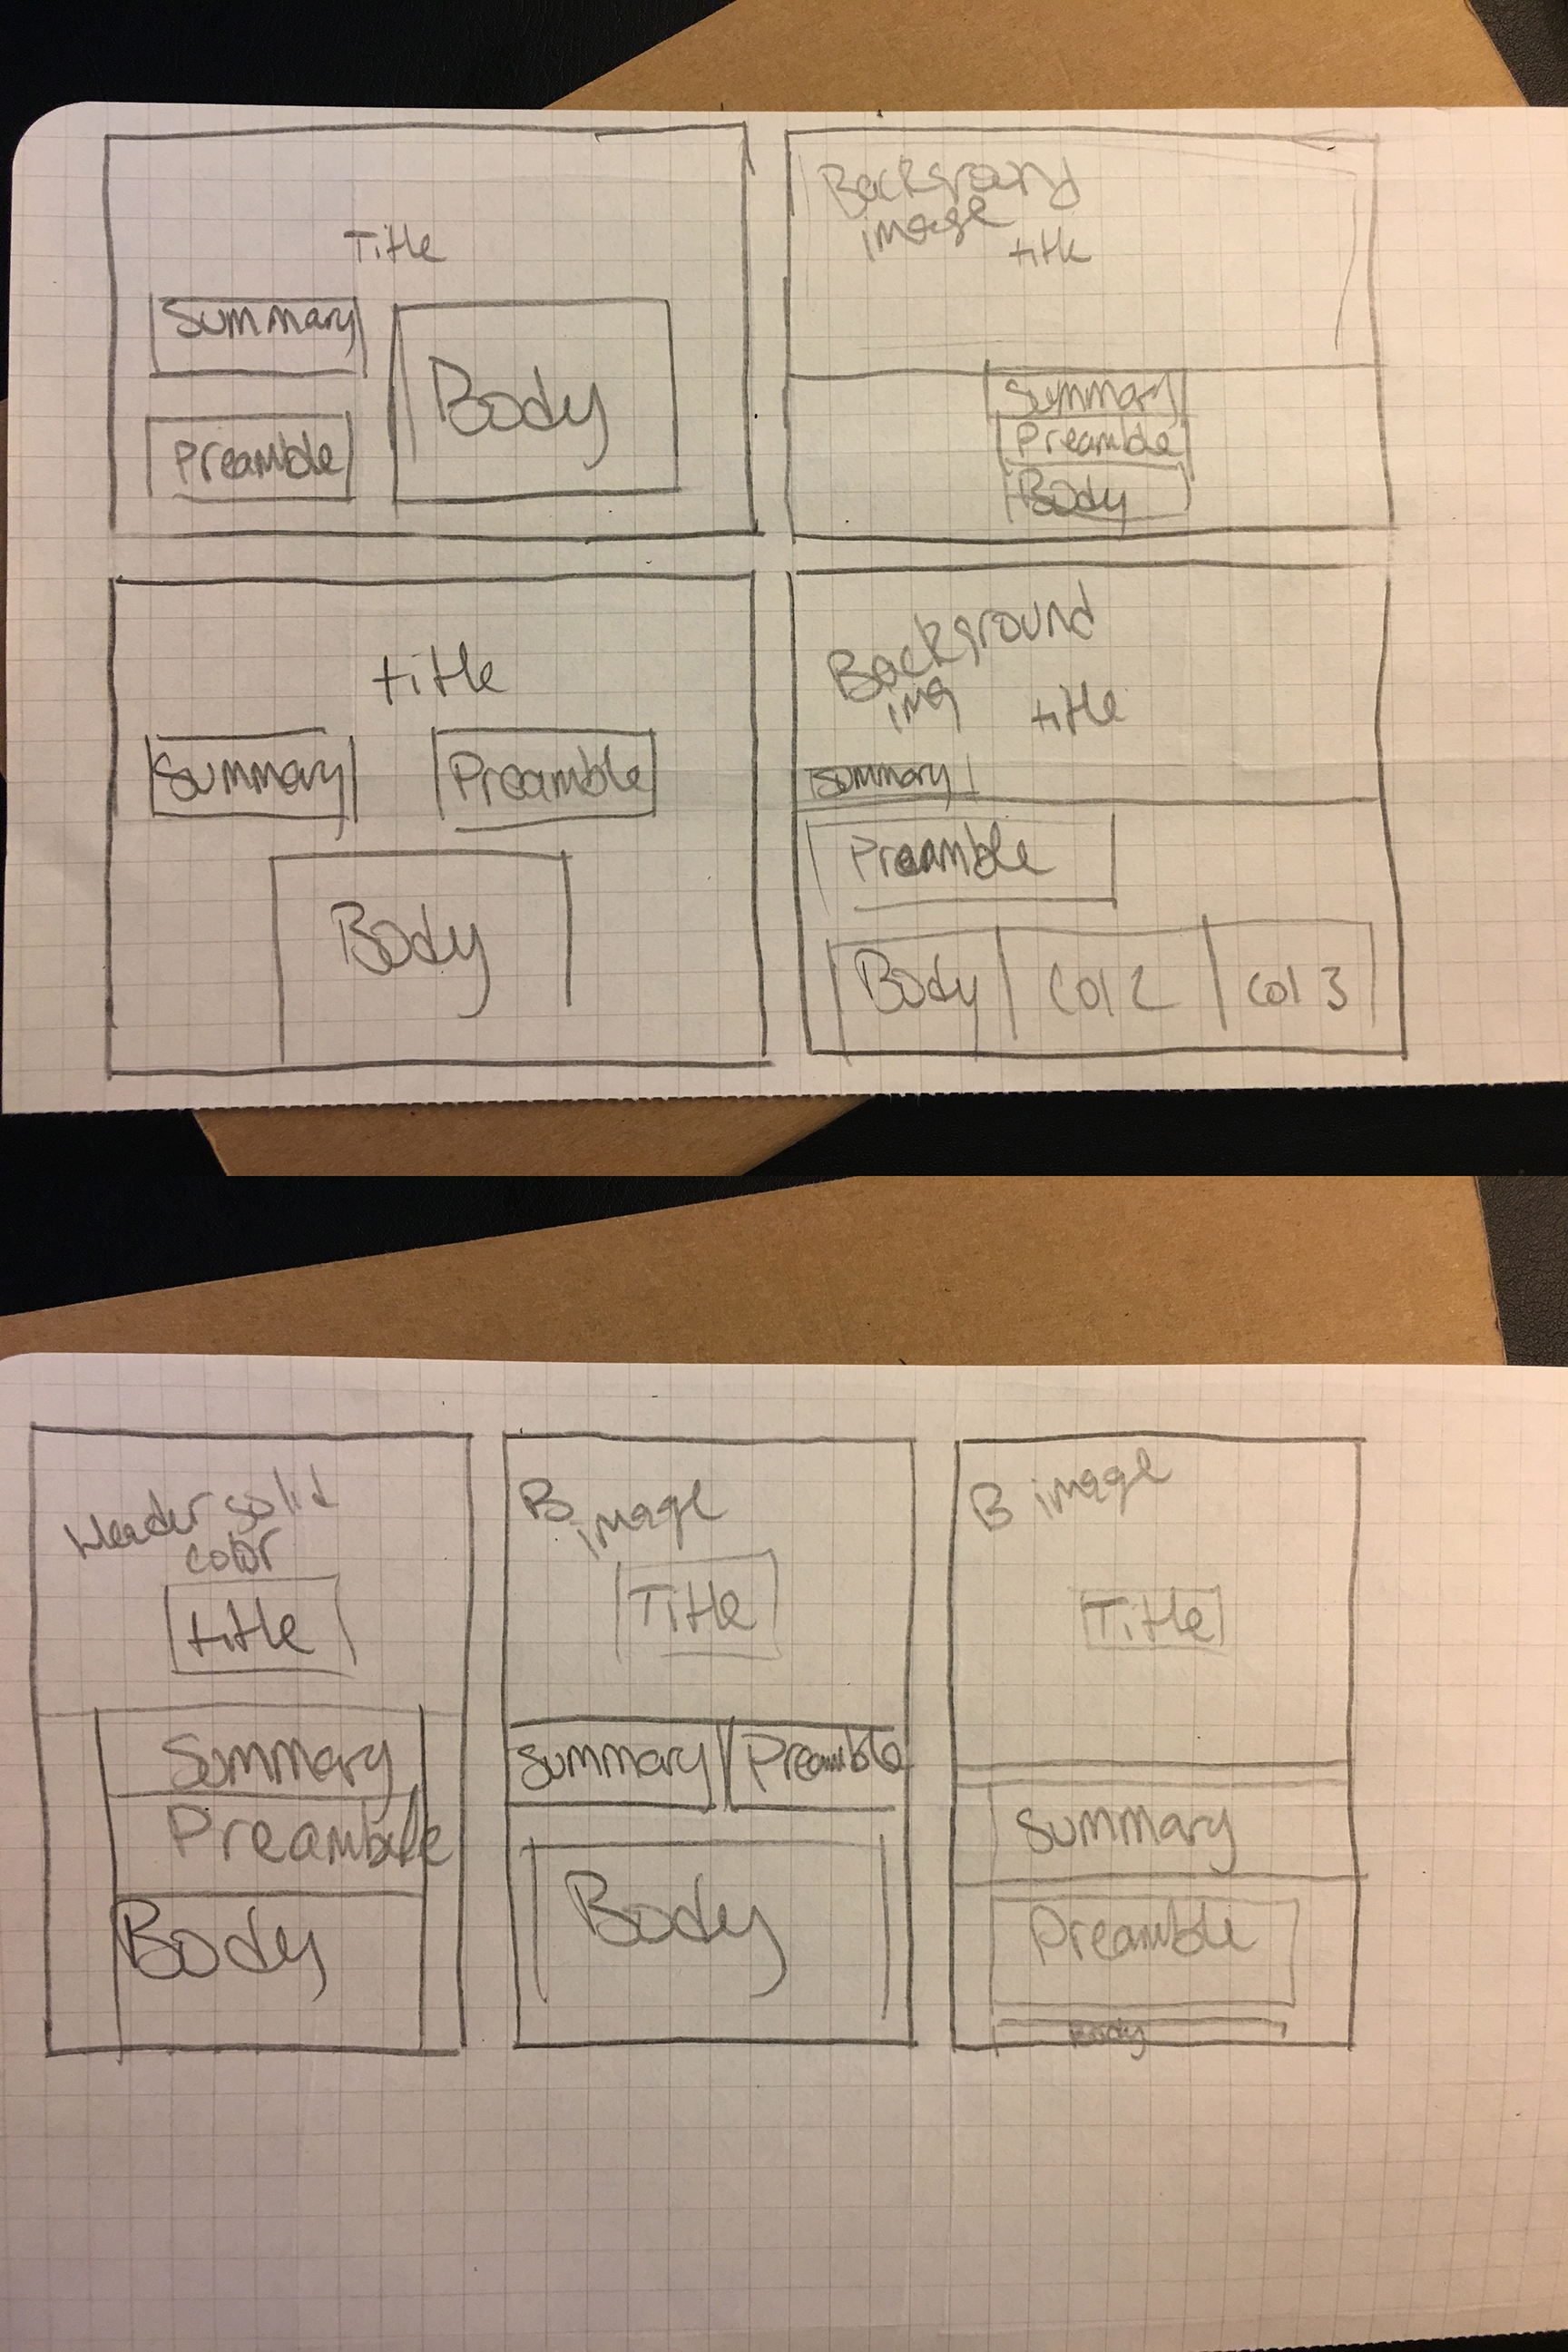 Title
Summary
Body
Preamble
Background
image
title
Summary
Preamble
Body
title
Summary
Preamble
Body
Background
img
title
Summary
Preamble
Body
Col 2
col 3
Header solid
color
title
Summary
Preamble
Body
B
image
Title
Summary
Preamble
Body
B image
Title
Summary
Preamble
Body